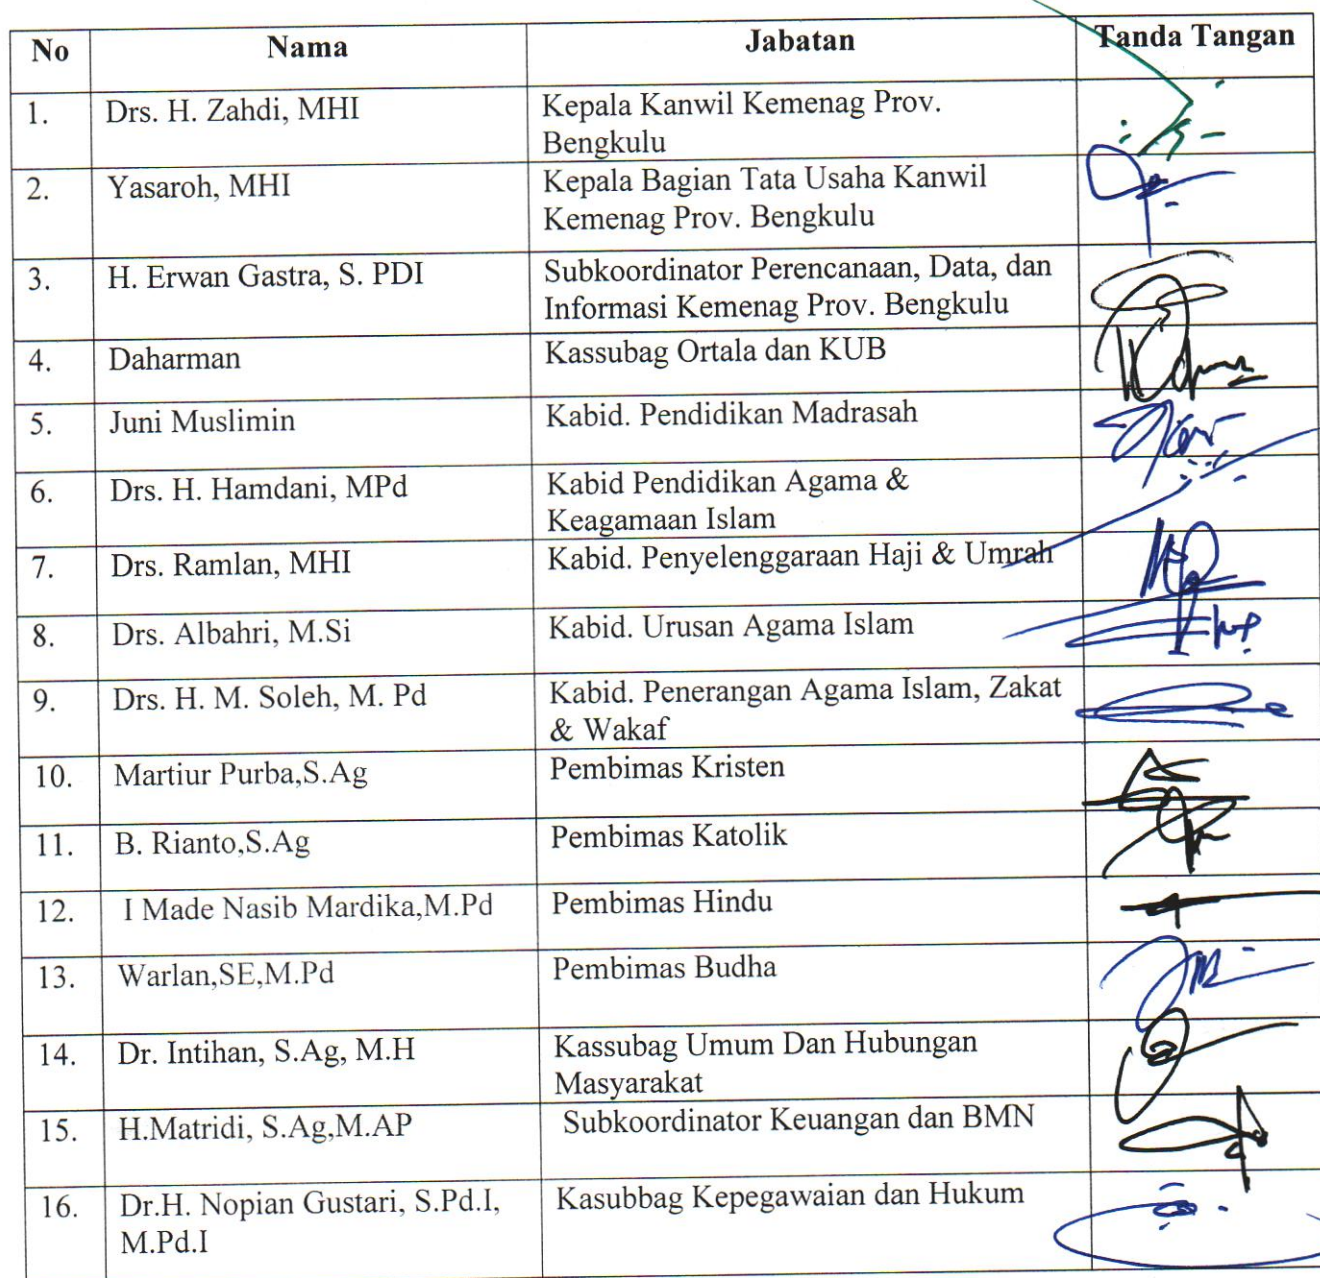 No Nama Jabatan Tanda Tangan
1. Drs. H. Zahdi, MHI Kepala Kanwil Kemenag Prov.
Bengkulu
2. Yasaroh, MHI Kepala Bagian Tata Usaha Kanwil
Kemenag Prov. Bengkulu
3. H. Erwan Gastra, S. PDI Subkoordinator Perencanaan, Data, dan
Informasi Kemenag Prov. Bengkulu
4. Daharman Kassubag Ortala dan KUB
5. Juni Muslimin Kabid. Pendidikan Madrasah
6. Drs. H. Hamdani, MPd Kabid Pendidikan Agama &
Keagamaan Islam
7. Drs. Ramlan, MHI Kabid. Penyelenggaraan Haji & Umrah
8. Drs. Albahri, M.Si Kabid. Urusan Agama Islam
9. Drs. H. M. Soleh, M. Pd Kabid. Penerangan Agama Islam, Zakat
& Wakaf
10. Martiur Purba,S.Ag Pembimas Kristen
11. B. Rianto,S.Ag Pembimas Katolik
12. I Made Nasib Mardika,M.Pd Pembimas Hindu
13. Warlan,SE,M.Pd Pembimas Budha
14. Dr. Intihan, S.Ag, M.H Kassubag Umum Dan Hubungan
Masyarakat
15. H.Matridi, S.Ag,M.AP Subkoordinator Keuangan dan BMN
16. Dr.H. Nopian Gustari, S.Pd.I, Kasubbag Kepegawaian dan Hukum
M.Pd.I